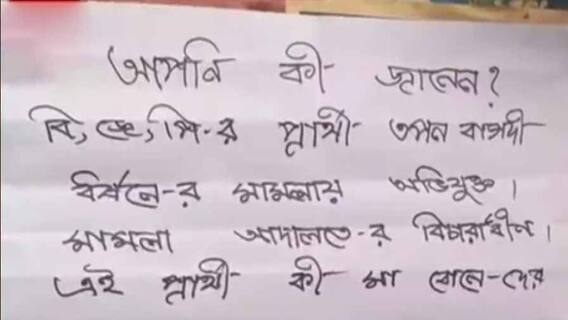 আপনি কী জানেন?
বি,জে,পি-র প্রার্থী তপন বাগদী
ধর্ষনে-র মামলায় অভিযুক্ত।
মামলা আদালতে-র বিচারাধীণ।
এই প্রার্থী কী মা বোনে-দের